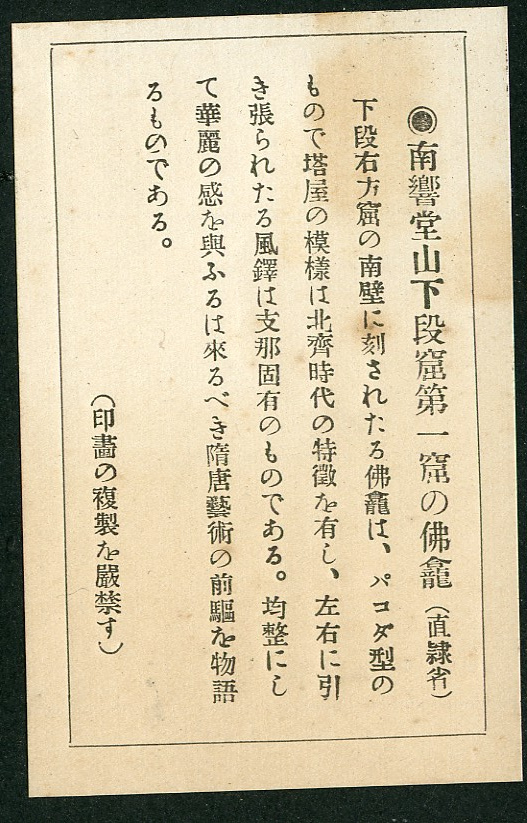 ◉南響堂山下段窟第一窟の佛龕（直隷省）
下段右方窟の南壁に刻されたる佛龕は、パコダ型の
もので塔屋の模樣は北齊時代の特徴を有し、左右に引
き張られたる風鐸は支那固有のものである。均整にし
て華麗の感を與ふるは來るべき隋唐藝術の前驅を物語
るものである。
（印畫の複製を嚴禁す）